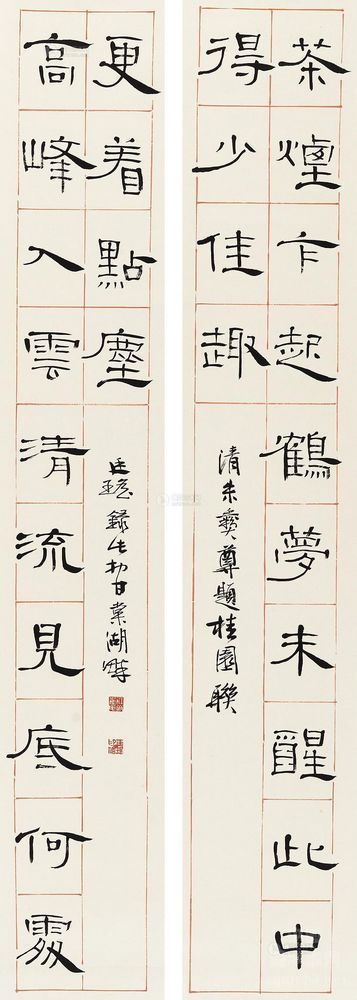 茶煙乍起鶴夢未醒此中
得少佳趣
清朱彝尊題桂園聯
高峰入雲清流見底何處
更着點塵
錄於甘棠湖畔